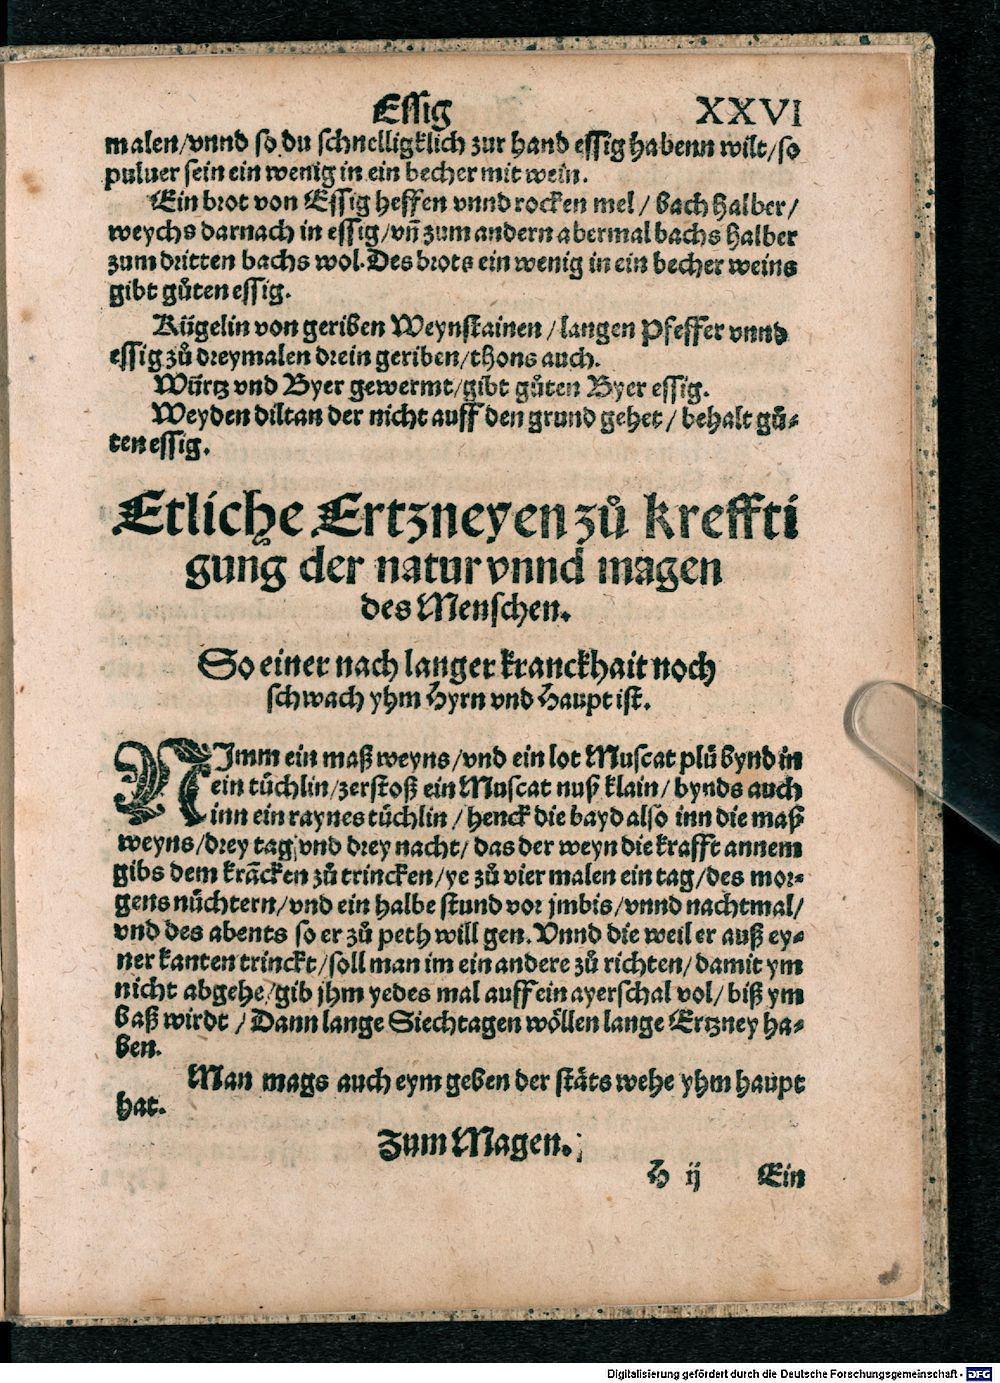 Essig XXVI
malen/vnnd so du schnelligklich zur hand essig habenn wilt/so
puluer sein ein wenig in ein becher mit wein.
Ein brot von Essig heffen vnnd rocken mel / bach halber/
weychs darnach in essig/vñ zum andern abermal bachs halber
zum dritten bachs wol. Des brots ein wenig in ein becher weins
gibt gůten essig.
Kügelin von geriben Weynstainen / langen Pfeffer vnnd
essig zů dreymalen drein geriben/thons auch.
Würtz vnd Byer gewermt/gibt gůten Byer essig.
Weyden diltan der nicht auff den grund gehet / behalt gů-
ten essig.
Etliche Ertzneyen zů kreffti
gung der natur vnnd magen
des Menschen.
So einer nach langer kranckhait noch
schwach yhm Hyrn vnd Haupt ist.
NImm ein maß weyns/vnd ein lot Muscat plů bynd in
ein tüchlin/zerstoß ein Muscat nuß klain/ bynds auch
inn ein raynes tüchlin / henck die bayd also inn die maß
weyns/drey tag vnd drey nacht/ das der weyn die krafft annem
gibs dem krãcken zů trincken/ye zů vier malen ein tag/des mor-
gens nüchtern/vnd ein halbe stund vor jmbis/vnnd nachtmal/
vnd des abents so er zů peth will gen. Vnnd die weil er auß ey-
ner kanten trinckt/soll man im ein andere zů richten/damit ym
nicht abgehe/gib jhm yedes mal auff ein ayerschal vol/ biß ym
baß wirdt / Dann lange Siechtagen wöllen lange Ertzney ha-
ben.
Man mags auch eym geben der stäts wehe yhm haupt
hat.
Zum Magen.
H ij Ein
Digitalisierung gefördert durch die Deutsche Forschungsgemeinschaft - DFG